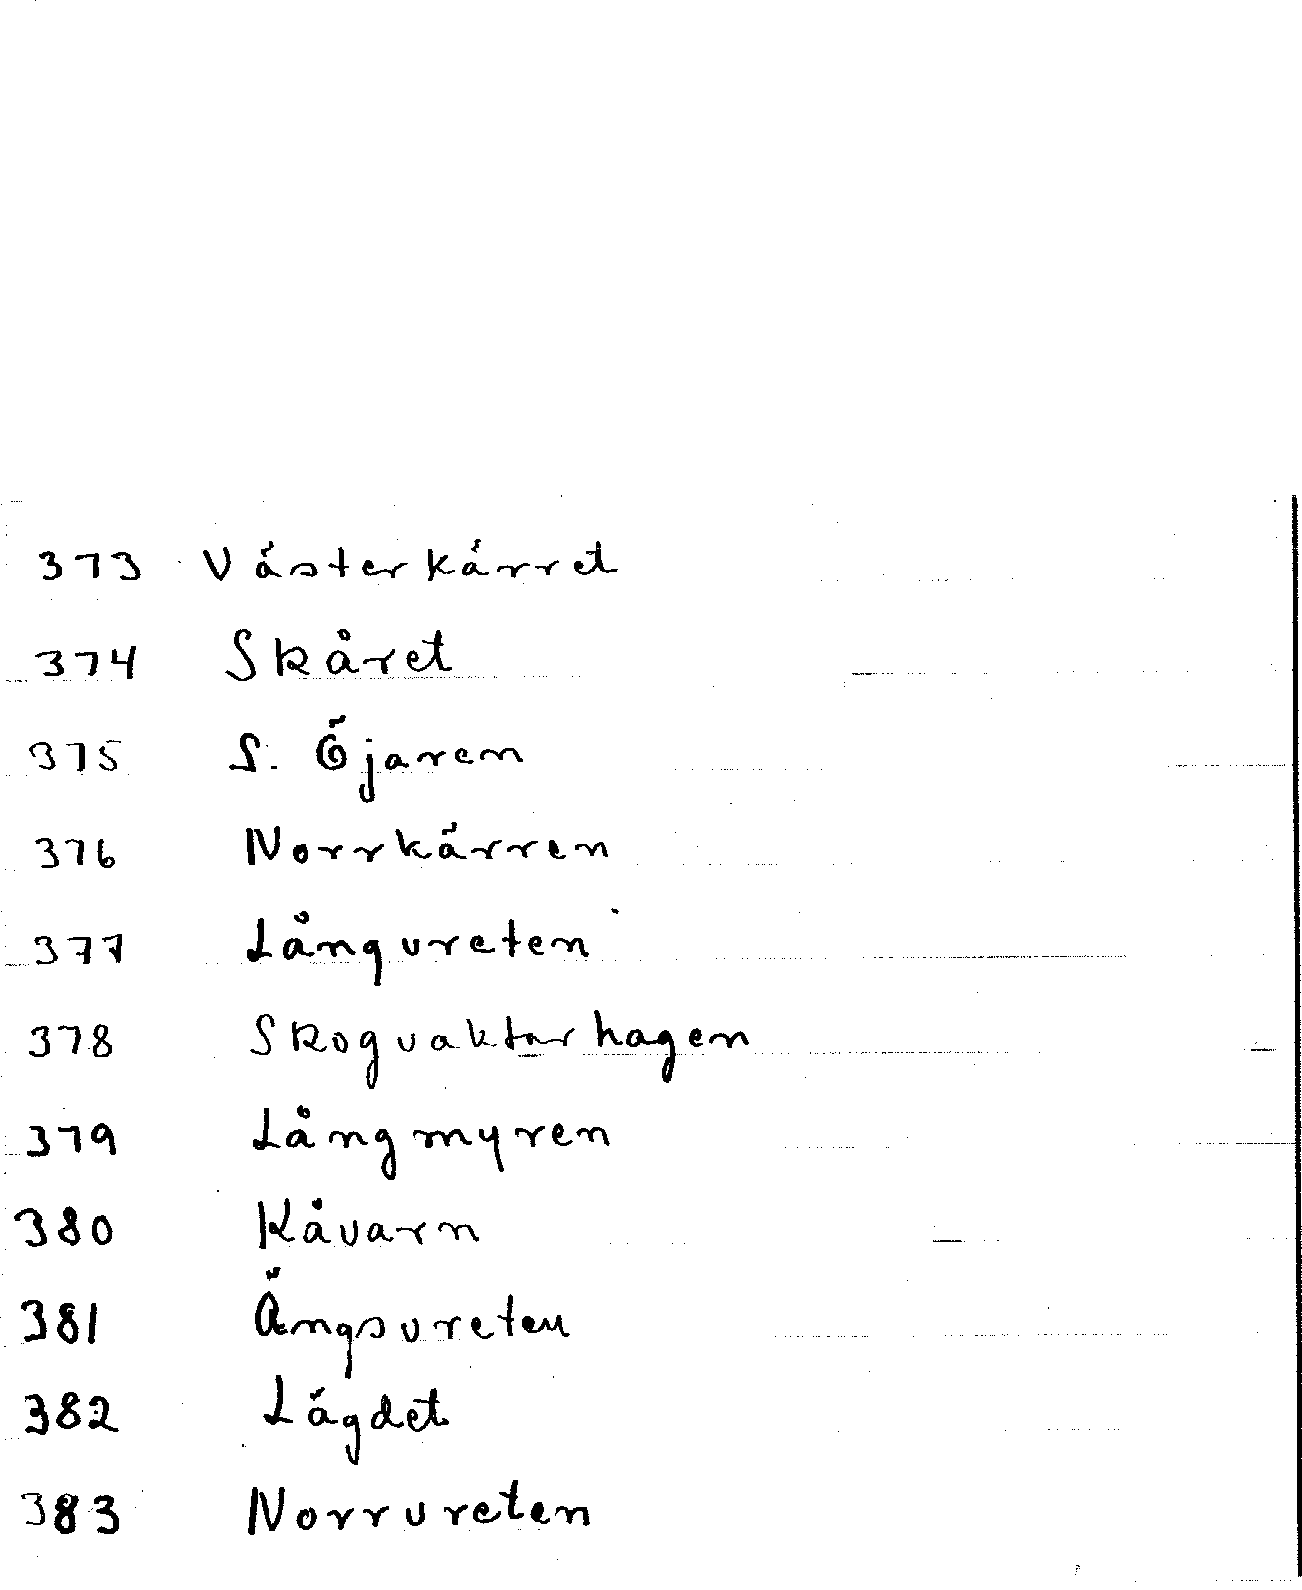 373 Västerkärret
374 Skåret
375 S. Öjaren
376 Norrkärren
377 Långvreten
378 Skogvaktarhagen
379 Långmyren
380 Kåvarn
381 Ängsvreten
382 Lägdet
383 Norrvreten